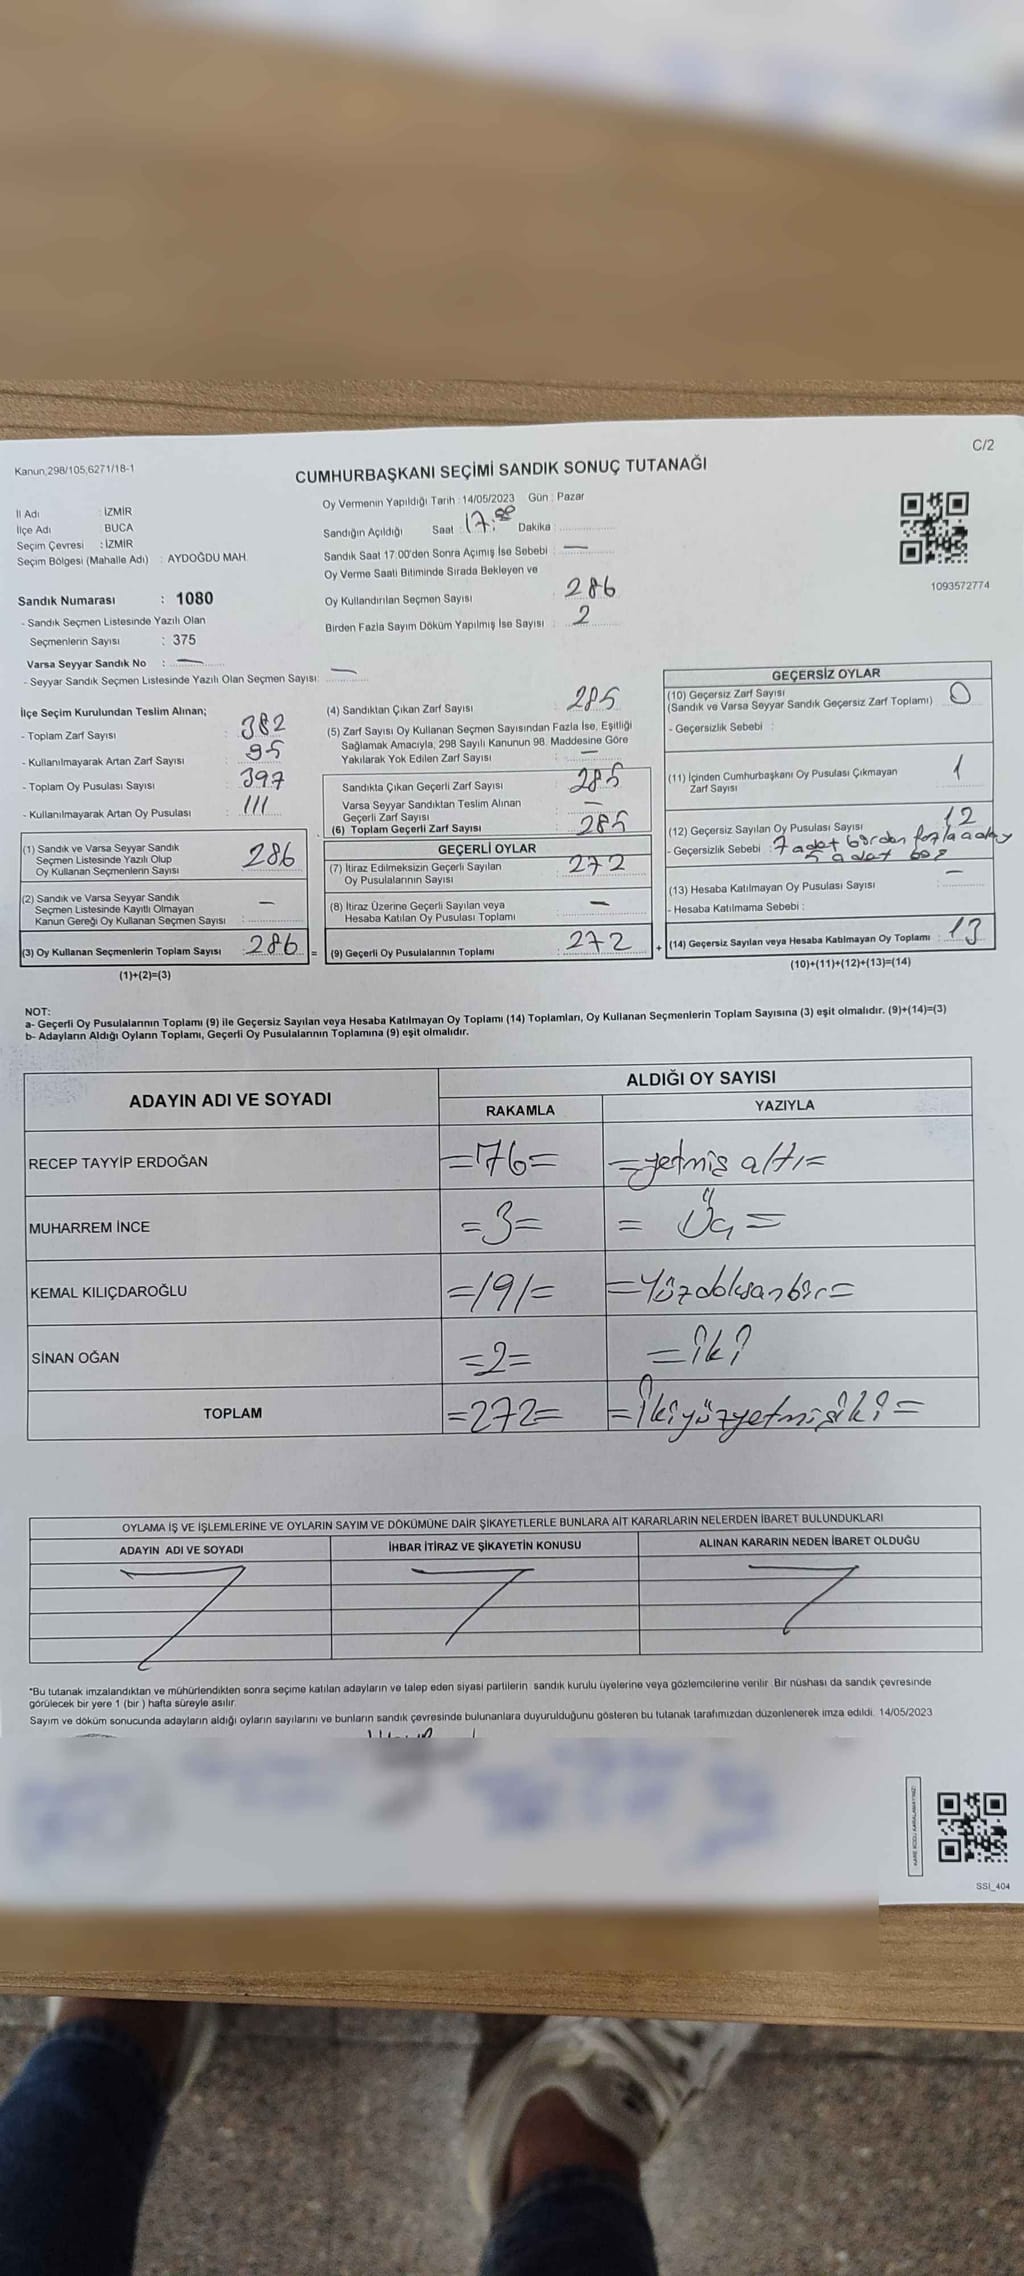 C/2
Kanun,298/105,6271/18-1
CUMHURBAŞKANI SEÇİMİ SANDIK SONUÇ TUTANAĞI
İl Adı : İZMİR
İlçe Adı : BUCA
Seçim Çevresi : İZMİR
Seçim Bölgesi (Mahalle Adı) : AYDOĞDU MAH.
Sandık Numarası : 1080
- Sandık Seçmen Listesinde Yazılı Olan
Seçmenlerin Sayısı : 375
Varsa Seyyar Sandık No : —
- Seyyar Sandık Seçmen Listesinde Yazılı Olan Seçmen Sayısı: —
Oy Vermenin Yapıldığı Tarih : 14/05/2023 Gün : Pazar
Sandığın Açıldığı Saat : 17:00 Dakika :
Sandık Saat 17.00'den Sonra Açımış İse Sebebi : —
Oy Verme Saati Bitiminde Sırada Bekleyen ve
Oy Kullandırılan Seçmen Sayısı : 286
Birden Fazla Sayım Döküm Yapılmış İse Sayısı : 2
1093572774
İlçe Seçim Kurulundan Teslim Alınan;
- Toplam Zarf Sayısı : 382
- Kullanılmayarak Artan Zarf Sayısı : 95
- Toplam Oy Pusulası Sayısı : 397
- Kullanılmayarak Artan Oy Pusulası : 111
(1) Sandık ve Varsa Seyyar Sandık
Seçmen Listesinde Yazılı Olup
Oy Kullanan Seçmenlerin Sayısı : 286
(2) Sandık ve Varsa Seyyar Sandık
Seçmen Listesinde Kayıtlı Olmayan
Kanun Gereği Oy Kullanan Seçmen Sayısı : —
(3) Oy Kullanan Seçmenlerin Toplam Sayısı : 286 =
(1)+(2)=(3)
(4) Sandıktan Çıkan Zarf Sayısı : 285
(5) Zarf Sayısı Oy Kullanan Seçmen Sayısından Fazla İse, Eşitliği
Sağlamak Amacıyla, 298 Sayılı Kanunun 98. Maddesine Göre
Yakılarak Yok Edilen Zarf Sayısı : —
Sandıkta Çıkan Geçerli Zarf Sayısı : 285
Varsa Seyyar Sandıktan Teslim Alınan
Geçerli Zarf Sayısı : —
(6) Toplam Geçerli Zarf Sayısı : 285
GEÇERLİ OYLAR
(7) İtiraz Edilmeksizin Geçerli Sayılan
Oy Pusulalarının Sayısı : 272
(8) İtiraz Üzerine Geçerli Sayılan veya
Hesaba Katılan Oy Pusulası Toplamı : —
(9) Geçerli Oy Pusulalarının Toplamı : 272 +
GEÇERSİZ OYLAR
(10) Geçersiz Zarf Sayısı
(Sandık ve Varsa Seyyar Sandık Geçersiz Zarf Toplamı) : 0
- Geçersizlik Sebebi :
(11) İçinden Cumhurbaşkanı Oy Pusulası Çıkmayan
Zarf Sayısı : 1
(12) Geçersiz Sayılan Oy Pusulası Sayısı : 12
- Geçersizlik Sebebi : 7 adet birden fazla aday
5 adet boş
(13) Hesaba Katılmayan Oy Pusulası Sayısı : —
- Hesaba Katılmama Sebebi :
(14) Geçersiz Sayılan veya Hesaba Katılmayan Oy Toplamı : 13
(10)+(11)+(12)+(13)=(14)
NOT:
a- Geçerli Oy Pusulalarının Toplamı (9) ile Geçersiz Sayılan veya Hesaba Katılmayan Oy Toplamı (14) Toplamları, Oy Kullanan Seçmenlerin Toplam Sayısına (3) eşit olmalıdır. (9)+(14)=(3)
b- Adayların Aldığı Oyların Toplamı, Geçerli Oy Pusulalarının Toplamına (9) eşit olmalıdır.
ADAYIN ADI VE SOYADI
ALDIĞI OY SAYISI
RAKAMLA YAZIYLA
RECEP TAYYİP ERDOĞAN =76= =yetmiş altı=
MUHARREM İNCE =3= = Üç =
KEMAL KILIÇDAROĞLU =191= =Yüzdoksanbir=
SİNAN OĞAN =2= =iki
TOPLAM =272= =İkiyüzyetmişiki=
OYLAMA İŞ VE İŞLEMLERİNE VE OYLARIN SAYIM VE DÖKÜMÜNE DAİR ŞİKAYETLERLE BUNLARA AİT KARARLARIN NELERDEN İBARET BULUNDUKLARI
ADAYIN ADI VE SOYADI İHBAR İTİRAZ VE ŞİKAYETİN KONUSU ALINAN KARARIN NEDEN İBARET OLDUĞU
*Bu tutanak imzalandıktan ve mühürlendikten sonra seçime katılan adayların ve talep eden siyasi partilerin sandık kurulu üyelerine veya gözlemcilerine verilir. Bir nüshası da sandık çevresinde
görülecek bir yere 1 (bir ) hafta süreyle asılır.
Sayım ve döküm sonucunda adayların aldığı oyların sayılarını ve bunların sandık çevresinde bulunanlara duyurulduğunu gösteren bu tutanak tarafımızdan düzenlenerek imza edildi. 14/05/2023
KARE KODU KARALAMAYINIZ!
SSI_404